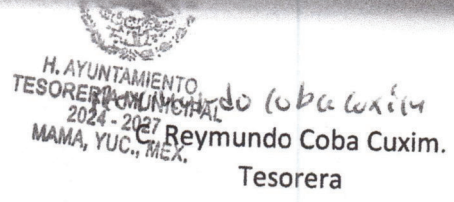 H. AYUNTAMIENTO
TESORERIA MUNICIPAL
2024 - 2027
MAMA, YUC., MEX.
Reymundo Coba Cuxim
C. Reymundo Coba Cuxim.
Tesorera